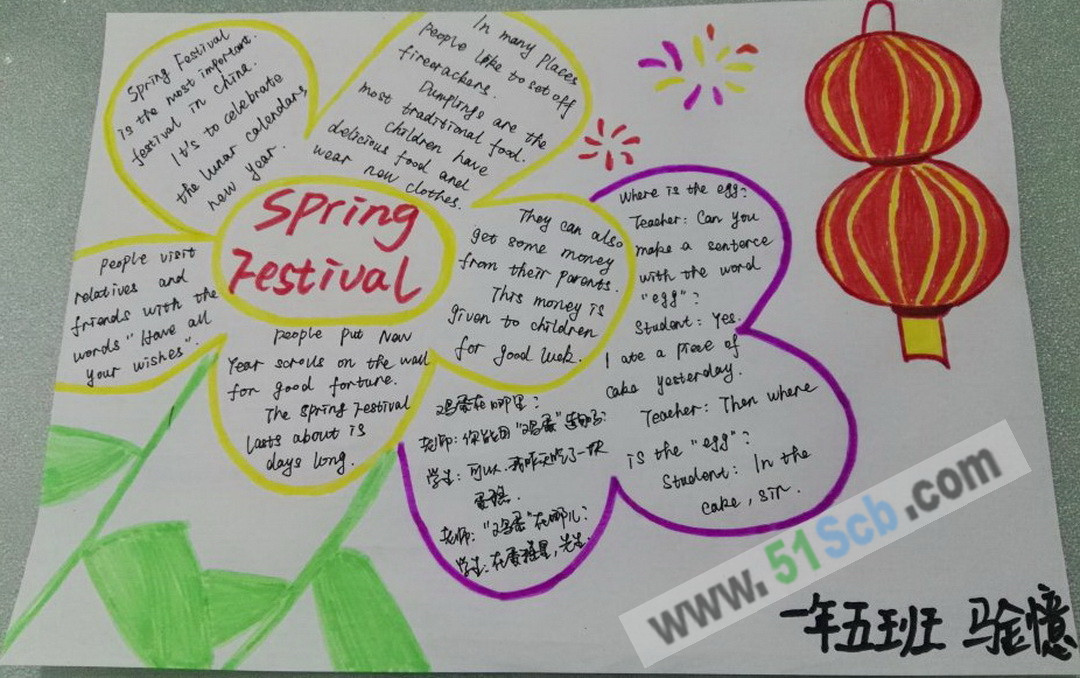 Spring Festival
is the most important
festival in China.
It's to celebrate
the lunar calendars
new year.
In many places
people like to set off
firecrackers.
Dumplings are the
most traditional food.
children have
delicious food and
wear new clothes.
Spring
Festival
People visit
relatives and
friends with the
words "Have all
your wishes".
They can also
get some money
from their parents.
This money is
given to children
for good luck.
People put New
Year scrolls on the wall
for good fortune.
The Spring Festival
lasts about 15
days long.
Where is the egg?
Teacher: Can you
make a sentence
with the word
"egg"?
Student: Yes.
I ate a piece of
cake yesterday.
Teacher: Then where
is the "egg"?
Student: In the
cake, sir.
鸡蛋在哪里?
老师:你能用"鸡蛋"造句吗?
学生:可以,我昨天吃了一块
蛋糕.
老师:"鸡蛋"在哪儿?
学生:在蛋糕里,先生.
www.51Scb.com
一年五班 马金憶